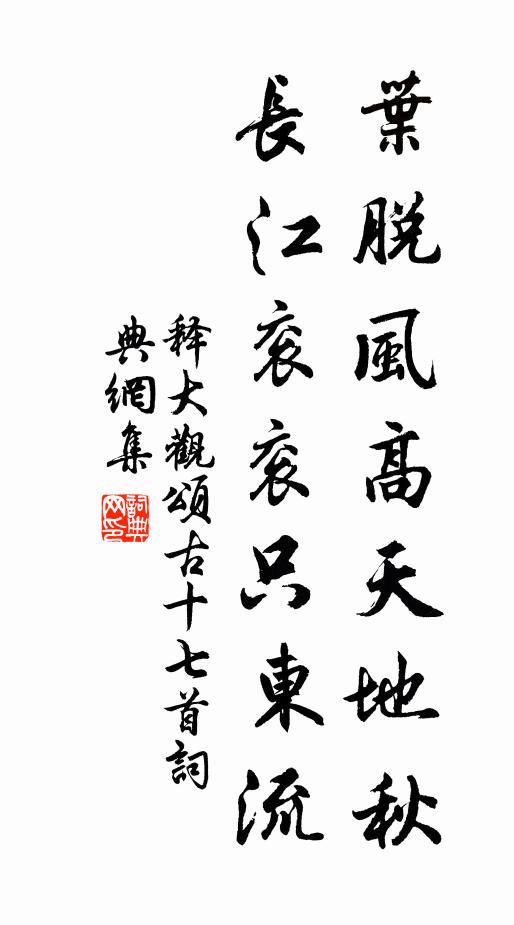 葉脱風高天地秋
長江衮衮只東流
释大觀頌古十七首詞
典網集
詞典网印